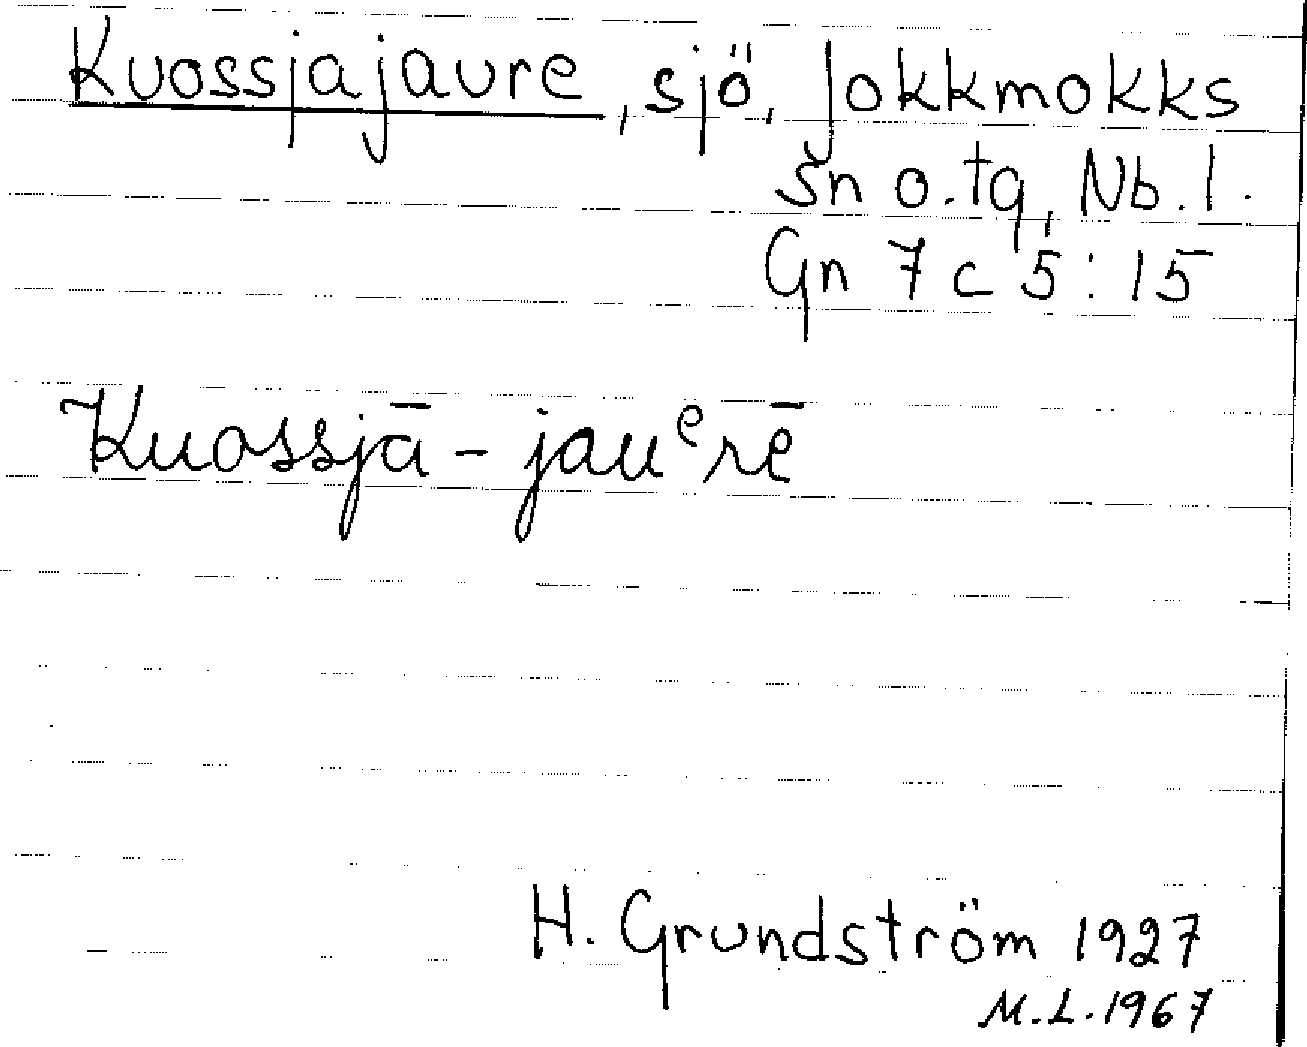 Kuossjajaure, sjö, Jokkmokks
sn o. tg, Nb. l.
Gn 7 c 5 : 15
Kuossjā - jauᵉrē
H. Grundström 1927
M. L. 1967